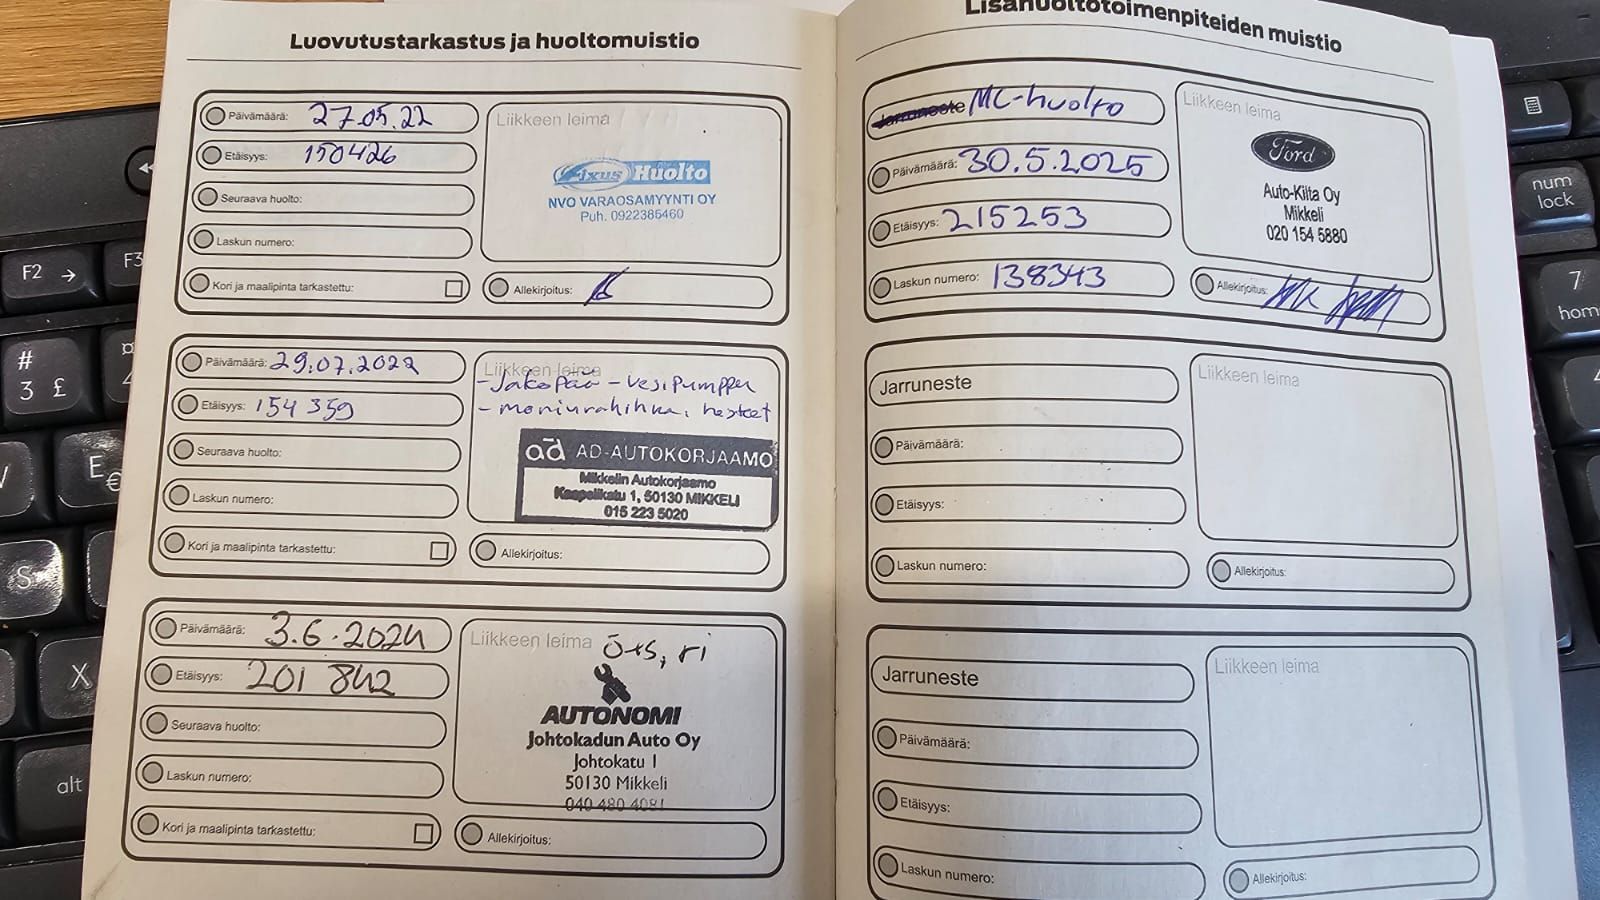 Luovutustarkastus ja huoltomuistio
Päivämäärä: 27.05.22
Etäisyys: 150426
Seuraava huolto:
Laskun numero:
Kori ja maalipinta tarkastettu:
Liikkeen leima
Fixus Huolto
NVO VARAOSAMYYNTI OY
Puh. 0922385460
Allekirjoitus:
Päivämäärä: 29.07.2022
Etäisyys: 154 359
Seuraava huolto:
Laskun numero:
Kori ja maalipinta tarkastettu:
Liikkeen leima
- Jakopää - vesipumppu
- moniurahihna, nesteet
ad AD-AUTOKORJAAMO
Mikkelin Autokorjaamo
Kaapelikatu 1, 50130 MIKKELI
015 223 5020
Allekirjoitus:
Päivämäärä: 3.6.2024
Etäisyys: 201 842
Seuraava huolto:
Laskun numero:
Kori ja maalipinta tarkastettu:
Liikkeen leima
AUTONOMI
Johtokadun Auto Oy
Johtokatu 1
50130 Mikkeli
040 480 4081
Allekirjoitus:
Lisähuoltotoimenpiteiden muistio
Jarruneste MC-huolto
Päivämäärä: 30.5.2025
Etäisyys: 215253
Laskun numero: 138343
Liikkeen leima
Ford
Auto-Kilta Oy
Mikkeli
020 154 5880
Allekirjoitus:
Jarruneste
Päivämäärä:
Etäisyys:
Laskun numero:
Liikkeen leima
Allekirjoitus:
Jarruneste
Päivämäärä:
Etäisyys:
Laskun numero:
Liikkeen leima
Allekirjoitus:
F2
F3
#
3 £
E
€
S
X
alt
num
lock
7
hom